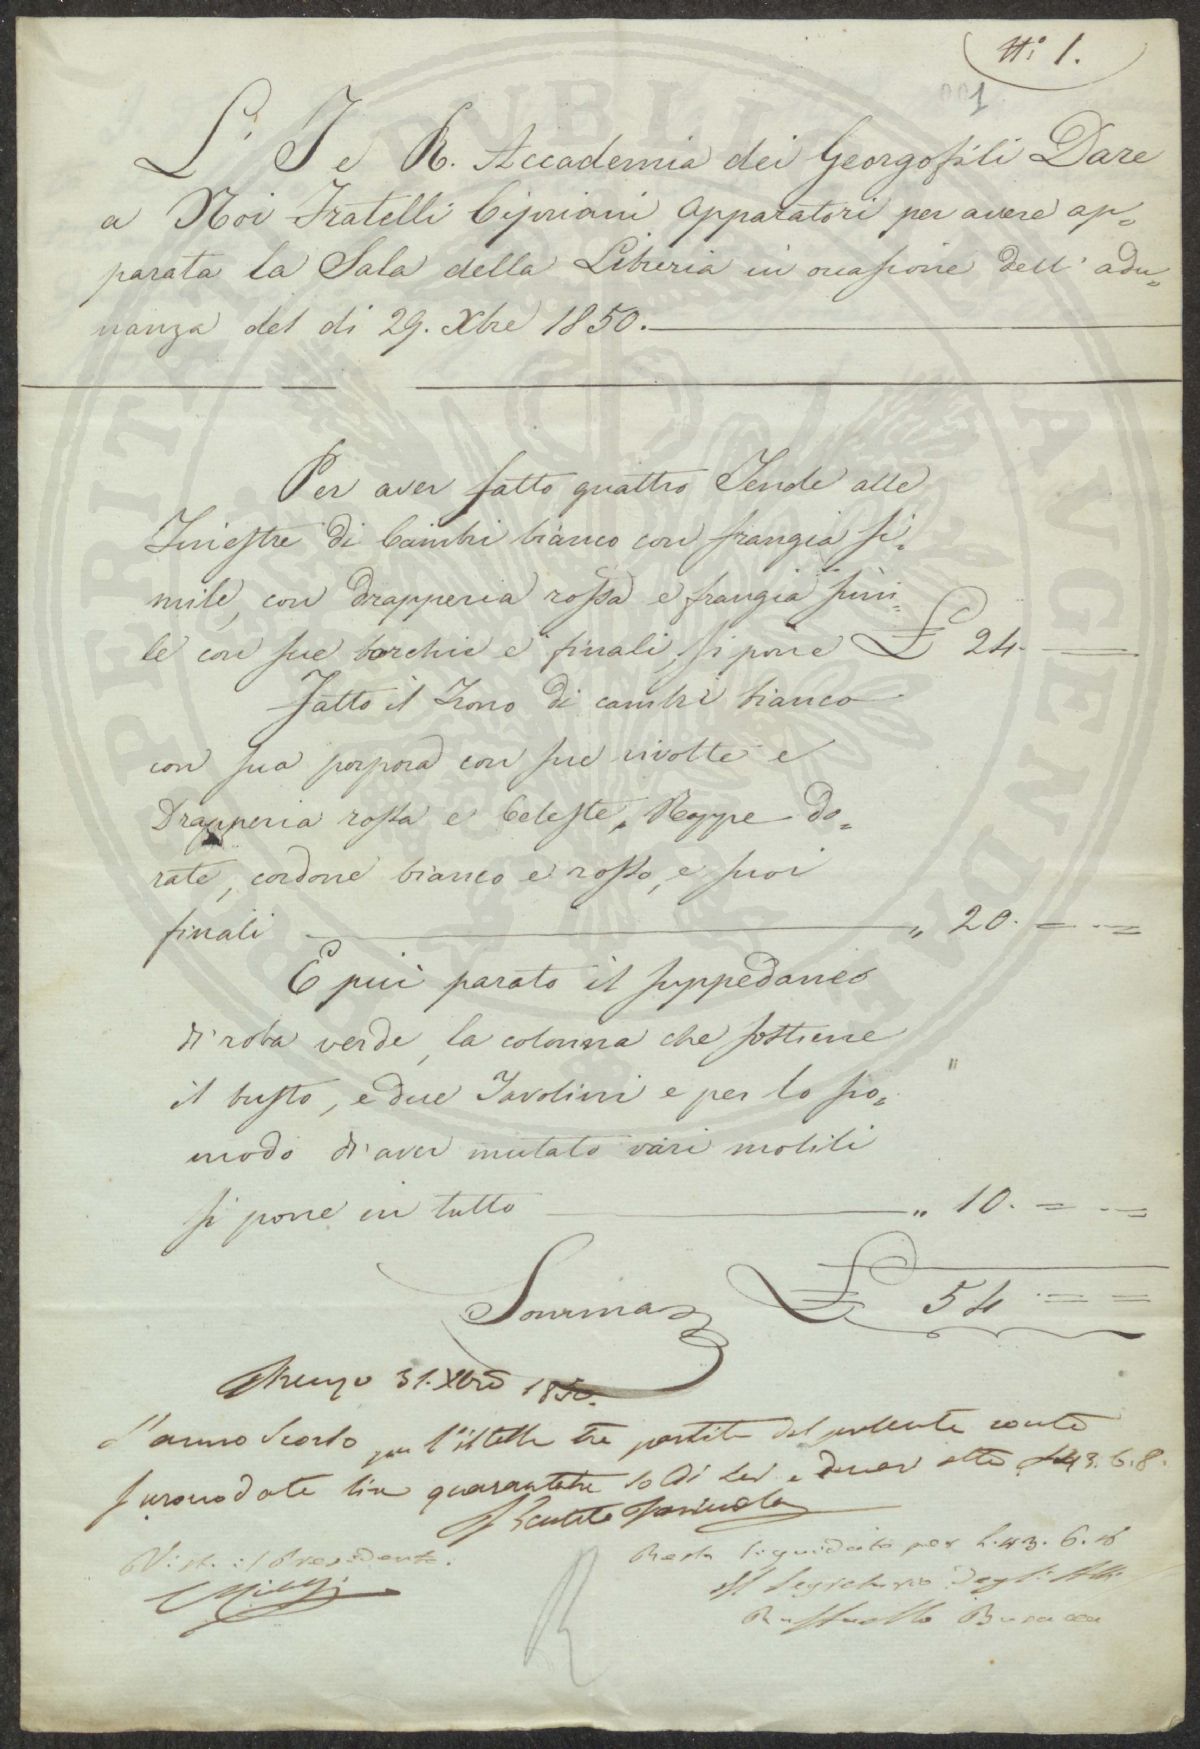 N:° 1.
001
L' I e R. Accademia dei Georgofili Dare
a Noi Fratelli Cipriani Apparatori per avere ap=
parata la Sala della Libreria in occasione dell' adu=
nanza del di 29. Xbre 1850.
Per aver fatto quattro Tende alle
Finestre di Cambri bianco con frangia si=
mile, con drapperia rossa e frangia simi=
le con sue borchie e finali, si pone £ 24.
Fatto il Trono di cambri bianco
con sua porpora con sue rivolte e
Drapperia rossa e Celeste, Rappe do=
rate, cordone bianco e rosso, e suoi
finali " 20. = .. =
E più parato il suppedaneo
di roba verde, la colonna che sostiene
il busto, e due Tavolini e per lo sco=
modo di aver mutato vari mobili
si pone in tutto " 10. = .. =
Somma £ 54 .. = =
Firenze 31. Xbre 1850.
L'anno scorso per l'istesse tre partite del presente conto
furono date lire quarantatre soldi sei e denari otto £ 43.6.8.
Visto il Presidente.
Resta liquidato per L. 43. 6. 8
Il Segretario degli Atti
Raffaello Busacca
R
PROSPERITATI PUBLICAE AUGENDAE